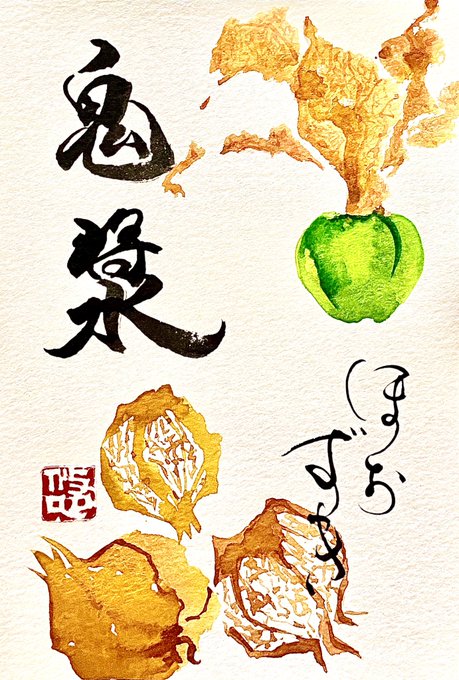 鬼漿
ほお
ずき